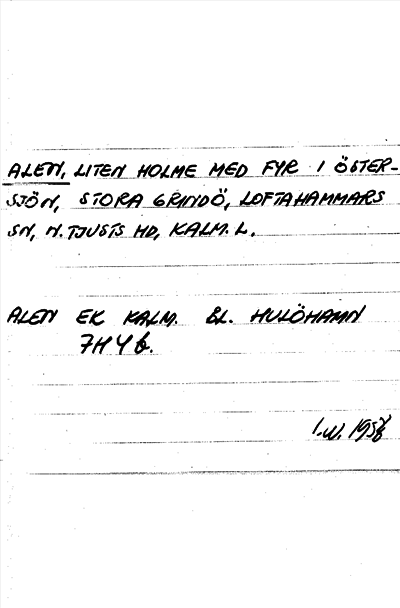 ALEN, LITEN HOLME MED FYR I ÖSTER-
SJÖN, STORA GRINDÖ, LOFTAHAMMARS
SN, N. TJUSTS HD, KALM. L.
ALEN EK KALM. BL. HULÖHAMN
7H Y b.
I.W.